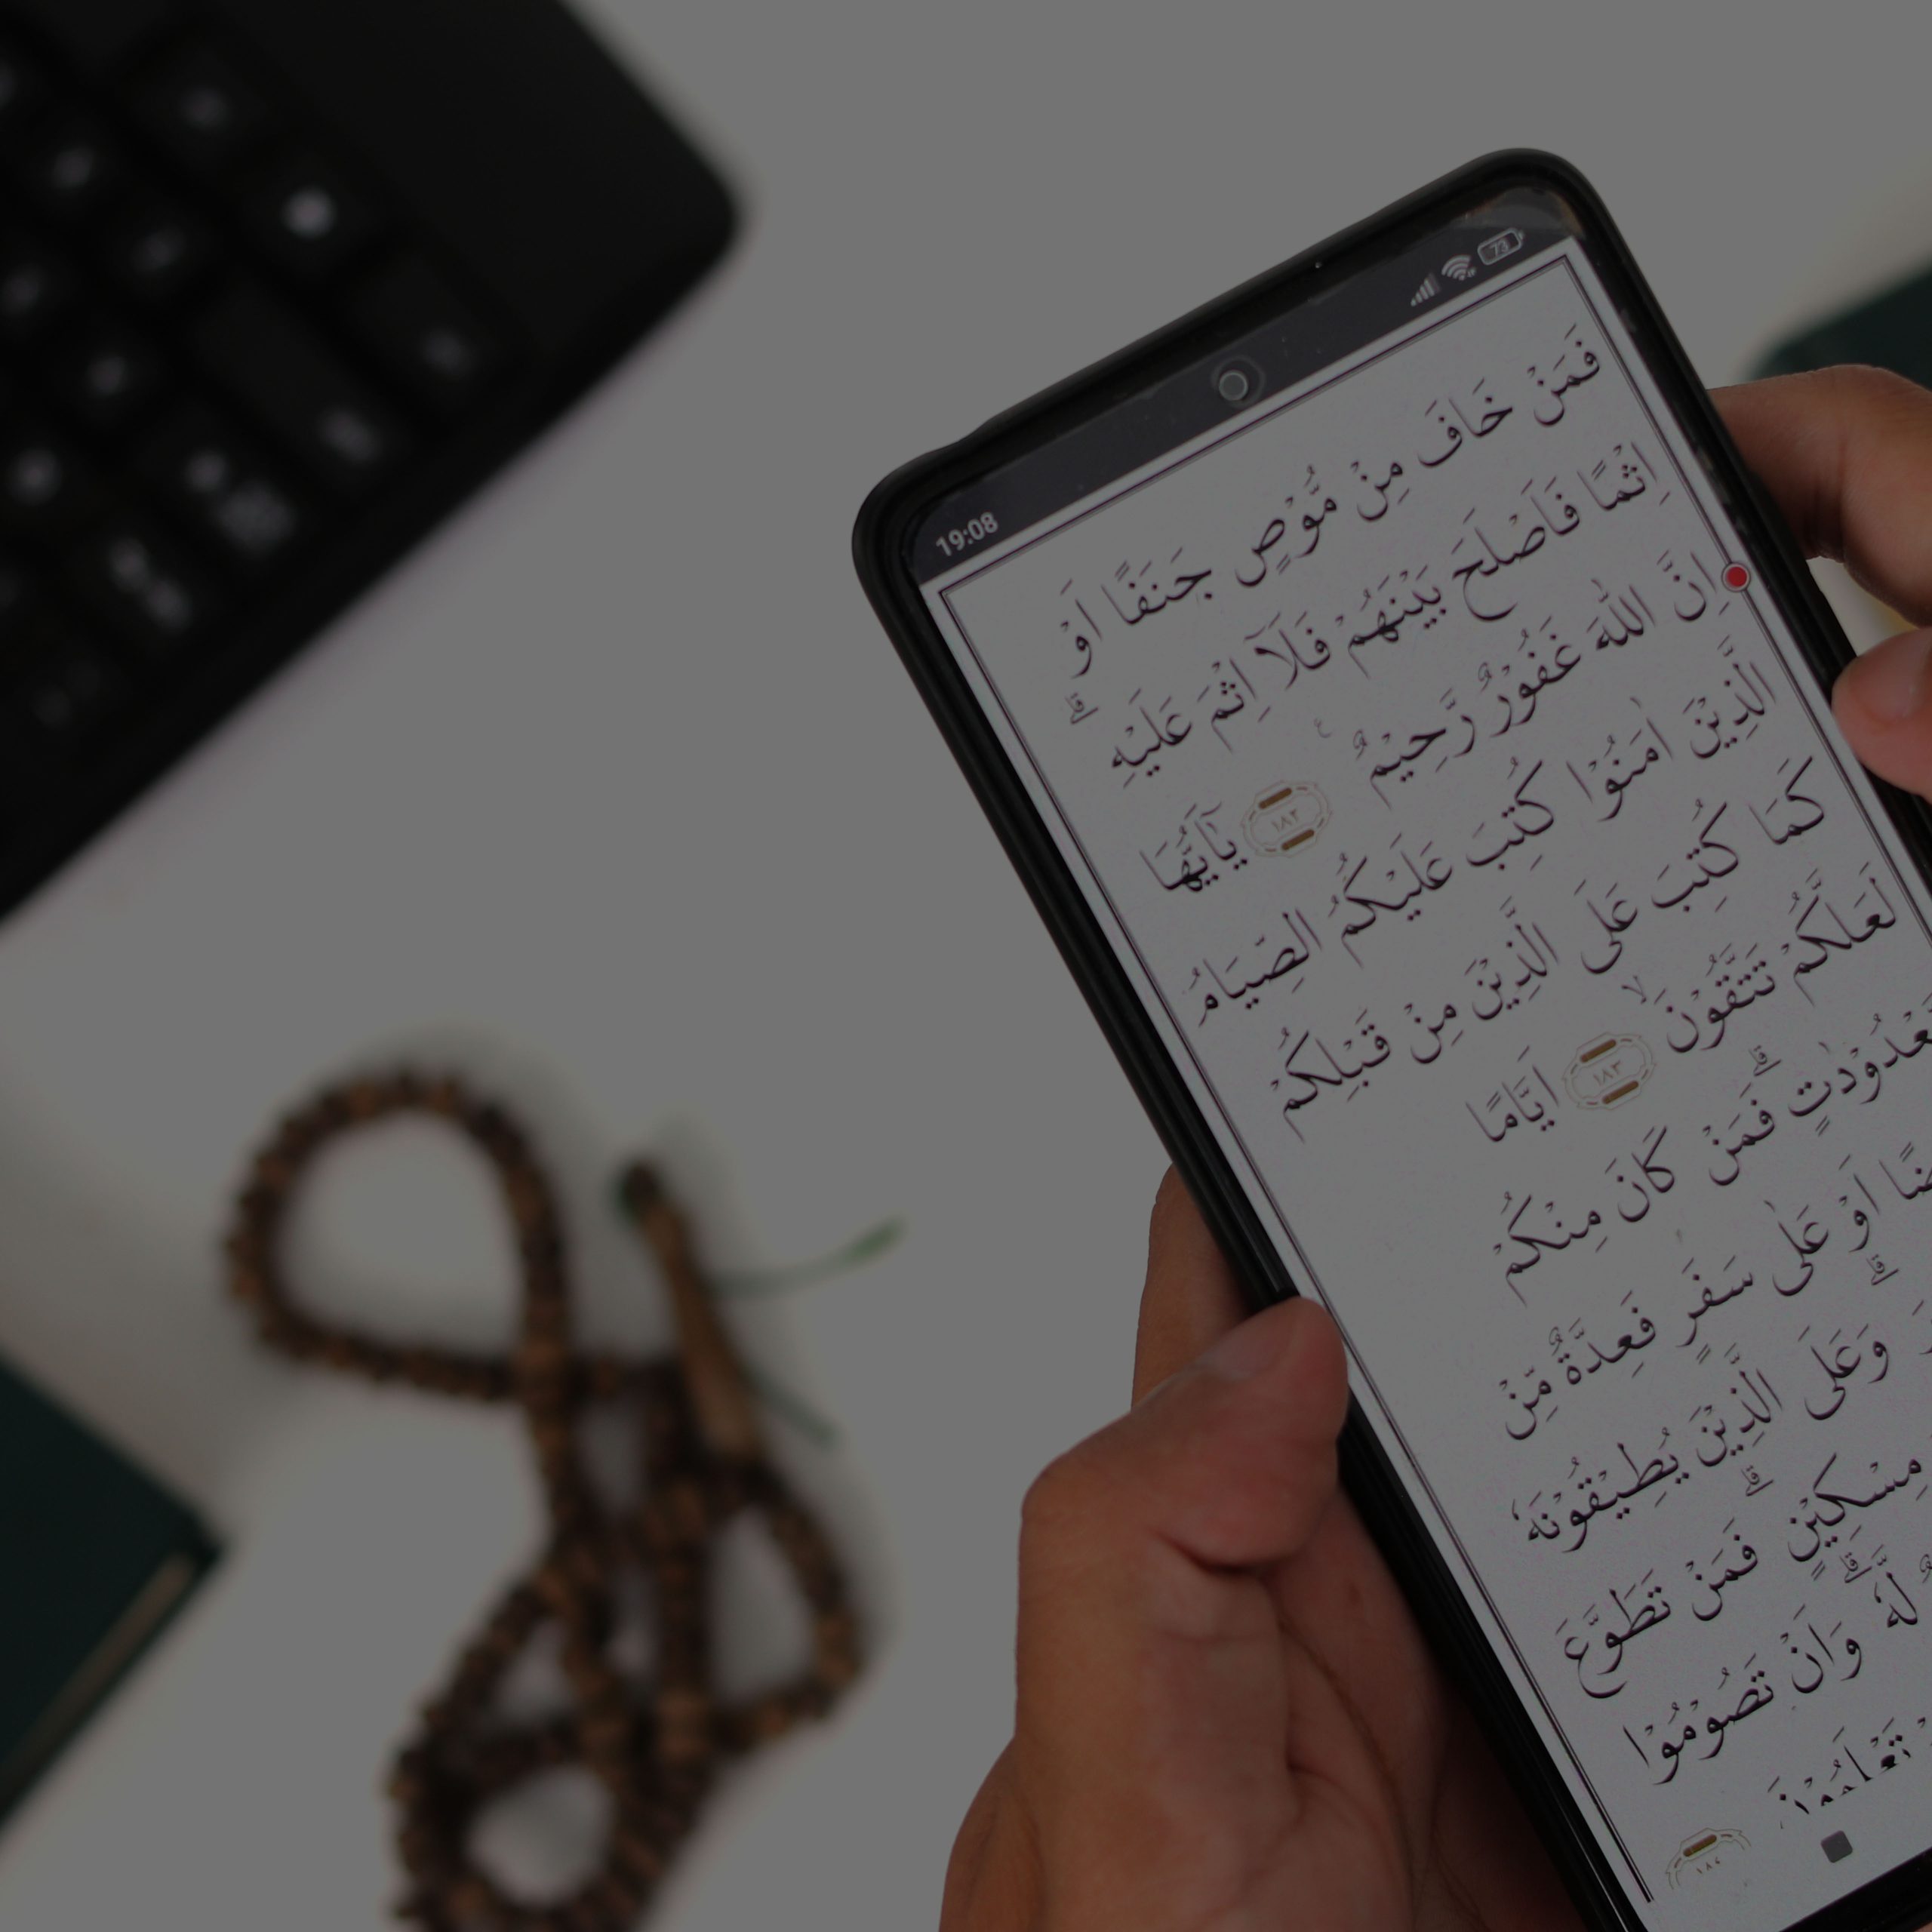 19:08
73
فَمَنْ خَافَ مِنْ مُّوْصٍ جَنَفًا اَوْ
اِثْمًا فَاَصْلَحَ بَيْنَهُمْ فَلَآ اِثْمَ عَلَيْهِ ۗ
اِنَّ اللّٰهَ غَفُوْرٌ رَّحِيْمٌ ࣖ ١٨٢ يٰٓاَيُّهَا
الَّذِيْنَ اٰمَنُوْا كُتِبَ عَلَيْكُمُ الصِّيَامُ
كَمَا كُتِبَ عَلَى الَّذِيْنَ مِنْ قَبْلِكُمْ
لَعَلَّكُمْ تَتَّقُوْنَۙ ١٨٣ اَيَّامًا
فَمَنْ كَانَ مِنْكُمْ
اَوْ عَلٰى سَفَرٍ فَعِدَّةٌ مِّنْ
وَعَلَى الَّذِيْنَ يُطِيْقُوْنَهٗ
مِسْكِيْنٍۗ فَمَنْ تَطَوَّعَ
لَّهٗ ۗ وَاَنْ تَصُوْمُوْا
تَعْلَمُوْنَ
١٨٤